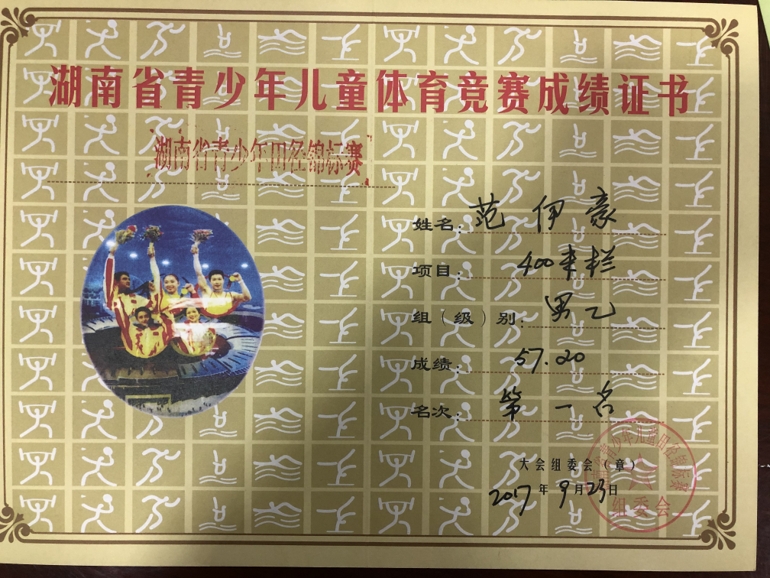 湖南省青少年儿童体育竞赛成绩证书
湖南省青少年田径锦标赛
姓名：范伊豪
项目：400米栏
组（级）别：男乙
成绩：57.20
名次：第一名
大会组委会（章）
2017年9月23日
组委会